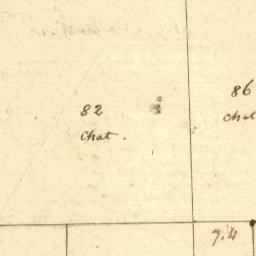 86
82
Chat.
7.4